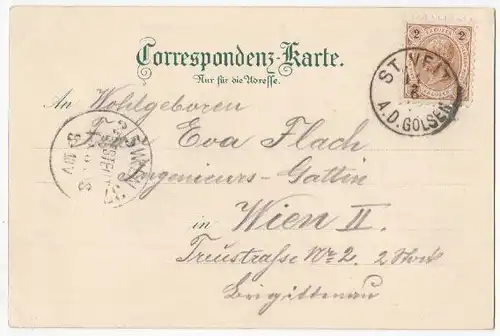 Correspondenz-Karte.
Nur für die Adresse.
2 2
ST. VEIT
A.D. GÖLSEN
An Wohlgeboren
Frau Eva Flach
Ingenieurs-Gattin
in Wien II.
Treustraße Nr 2. 2 Stock
Brigittenau